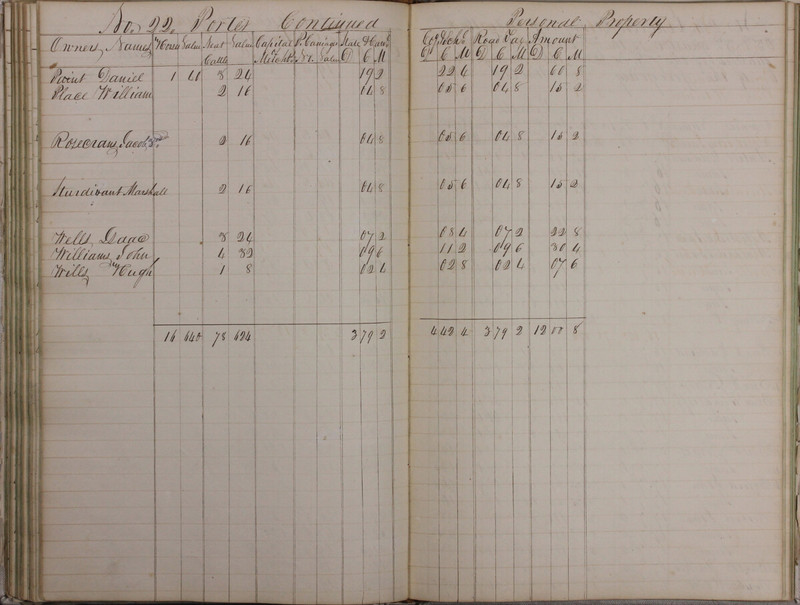 No. 22. Porter Continued Personal Property
Owners Names Horses Value Neat Cattle Value Capital Value State & Coun D C M Co & School D C M Road Tax D C M Amount D C M
Point Daniel 1 40 3 24 19 2 22 4 19 2 60 8
Place William 2 16 04 8 05 6 04 8 15 2
Rosecrans, Jacob 2 16 04 8 05 6 04 8 15 2
Sturdivant Marshall 2 16 04 8 05 6 04 8 15 2
Wells, Isaac 3 24 07 2 08 4 07 2 22 8
Williams, John 4 32 09 6 11 2 09 6 30 4
Wills, Hugh 1 8 02 4 02 8 02 4 07 6
16 640 78 624 3 79 2 4 42 4 3 79 2 12 00 8